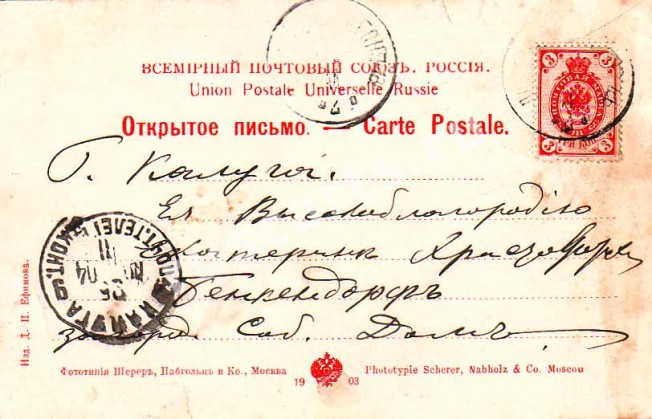 ВСЕМІРНЫЙ ПОЧТОВЫЙ СОЮЗЪ. РОССІЯ.
Union Postale Universelle Russie
Открытое письмо. — Carte Postale.
Г. Калуга.
Ея Высокоблагородію
Екатеринѣ
Бенкендорфъ
соб. Домъ
Изд. Д. П. Ефимова.
КАЛУГА
Фототипія Шереръ, Набгольцъ и Ко., Москва
19 03
Phototypie Scherer, Nabholz & Co. Moscou
3
3
3
3